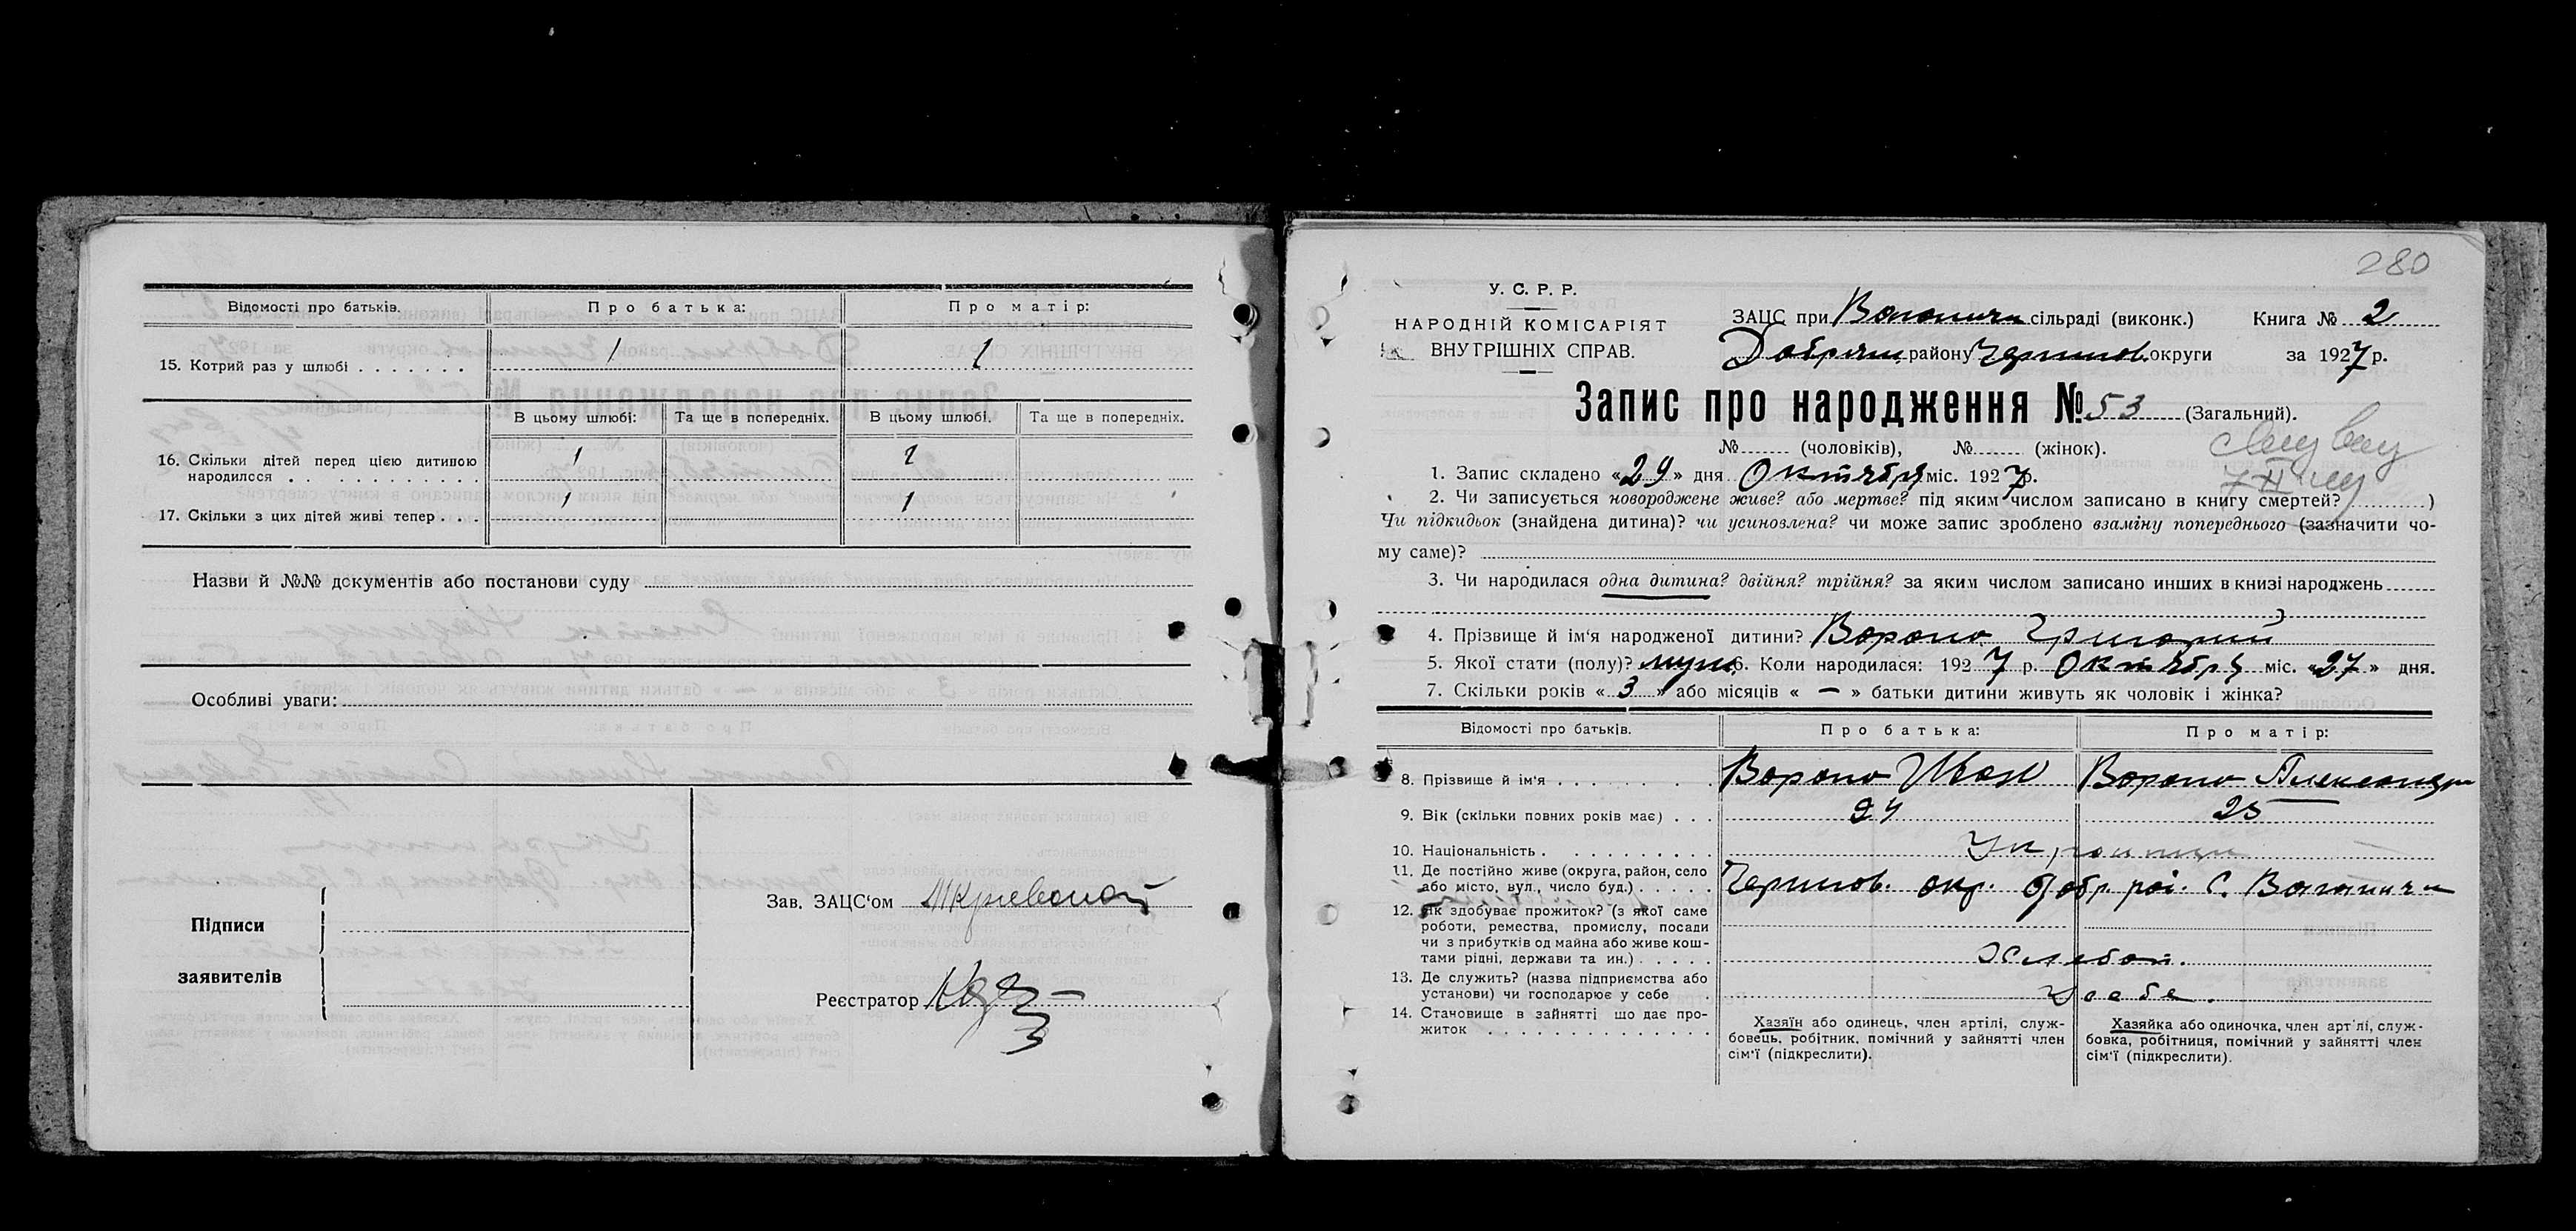 Відомості про батьків. Про батька: Про матір:
15. Котрий раз у шлюбі . . . . . . . 1 1
В цьому шлюбі: Та ще в попередніх. В цьому шлюбі. Та ще в попередніх.
16. Скільки дітей перед цією дитиною народилося . . . . . . . . . . . . 1 1
17. Скільки з цих дітей живі тепер . . . 1 1
Назви й №№ документів або постанови суду
Особливі уваги:
Підписи
заявителів
Зав. ЗАЦС'ом
Реєстратор
280
У. С. Р. Р.
НАРОДНІЙ КОМІСАРІЯТ
ВНУТРІШНІХ СПРАВ.
ЗАЦС при Ваганичи сільраді (виконк.) Книга № 2
Добрян. району Чернигов. округи за 1927 р.
Запис про народження № 53 (Загальний).
№ (чоловіків), № (жінок).
1. Запис складено «29» дня Октября міс. 1927 р.
2. Чи записується новороджене живе? або мертве? під яким числом записано в книгу смертей? )
Чи підкидьок (знайдена дитина)? чи усиновлена? чи може запис зроблено взаміну попереднього (зазначити чо-
му саме)?
3. Чи народилася одна дитина? двійня? трійня? за яким числом записано инших в книзі народжень
4. Прізвище й ім'я народженої дитини? Воропо Григорий
5. Якої стати (полу)? муж. 6. Коли народилася: 1927 р. Октября міс. «27» дня.
7. Скільки років «3» або місяців « — » батьки дитини живуть як чоловік і жінка?
Відомості про батьків. Про батька: Про матір:
8. Прізвище й ім'я . . . . . . . . Воропо Иван Воропо Александра
9. Вік (скільки повних років має) . . . 24 25
10. Національність . . . . . . . . . . Украинци
11. Де постійно живе (округа, район, село
або місто, вул., число буд.) . . . . . Чернигов. окр. Добр. рай. с. Ваганичи
12. Як здобуває прожиток? (з якої саме
роботи, ремества, промислу, посади
чи з прибутків од майна або живе кош-
тами рідні, держави та ин.) . . . . . Хлебоп.
13. Де служить? (назва підприємства або
установи) чи господарює у себе . У себе.
14. Становище в зайнятті що дає про-
житок . . . . . . . . . . . . . .
Хазяїн або одинець, член артілі, служ-
бовець, робітник, помічний у зайнятті член
сім'ї (підкреслити).
Хазяйка або одиночка, член арт'лі, служ-
бовка, робітниця, помічний у зайнятті член
сім'ї (підкреслити).